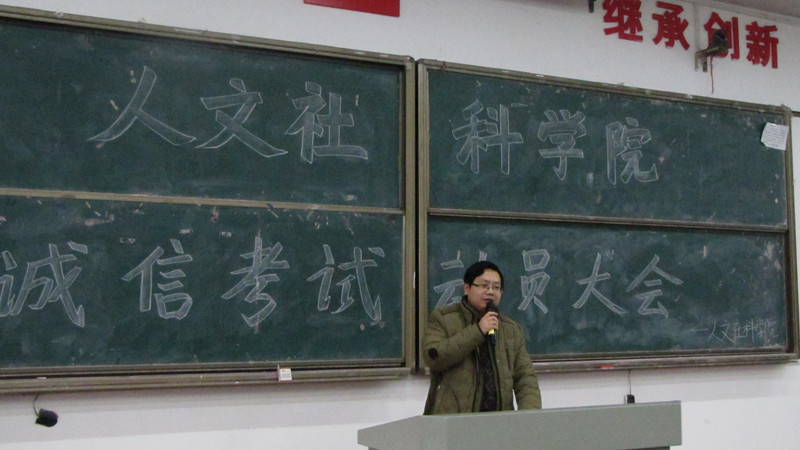 继承 创新
人文社科学院
诚信考试动员大会
—人文社科学院